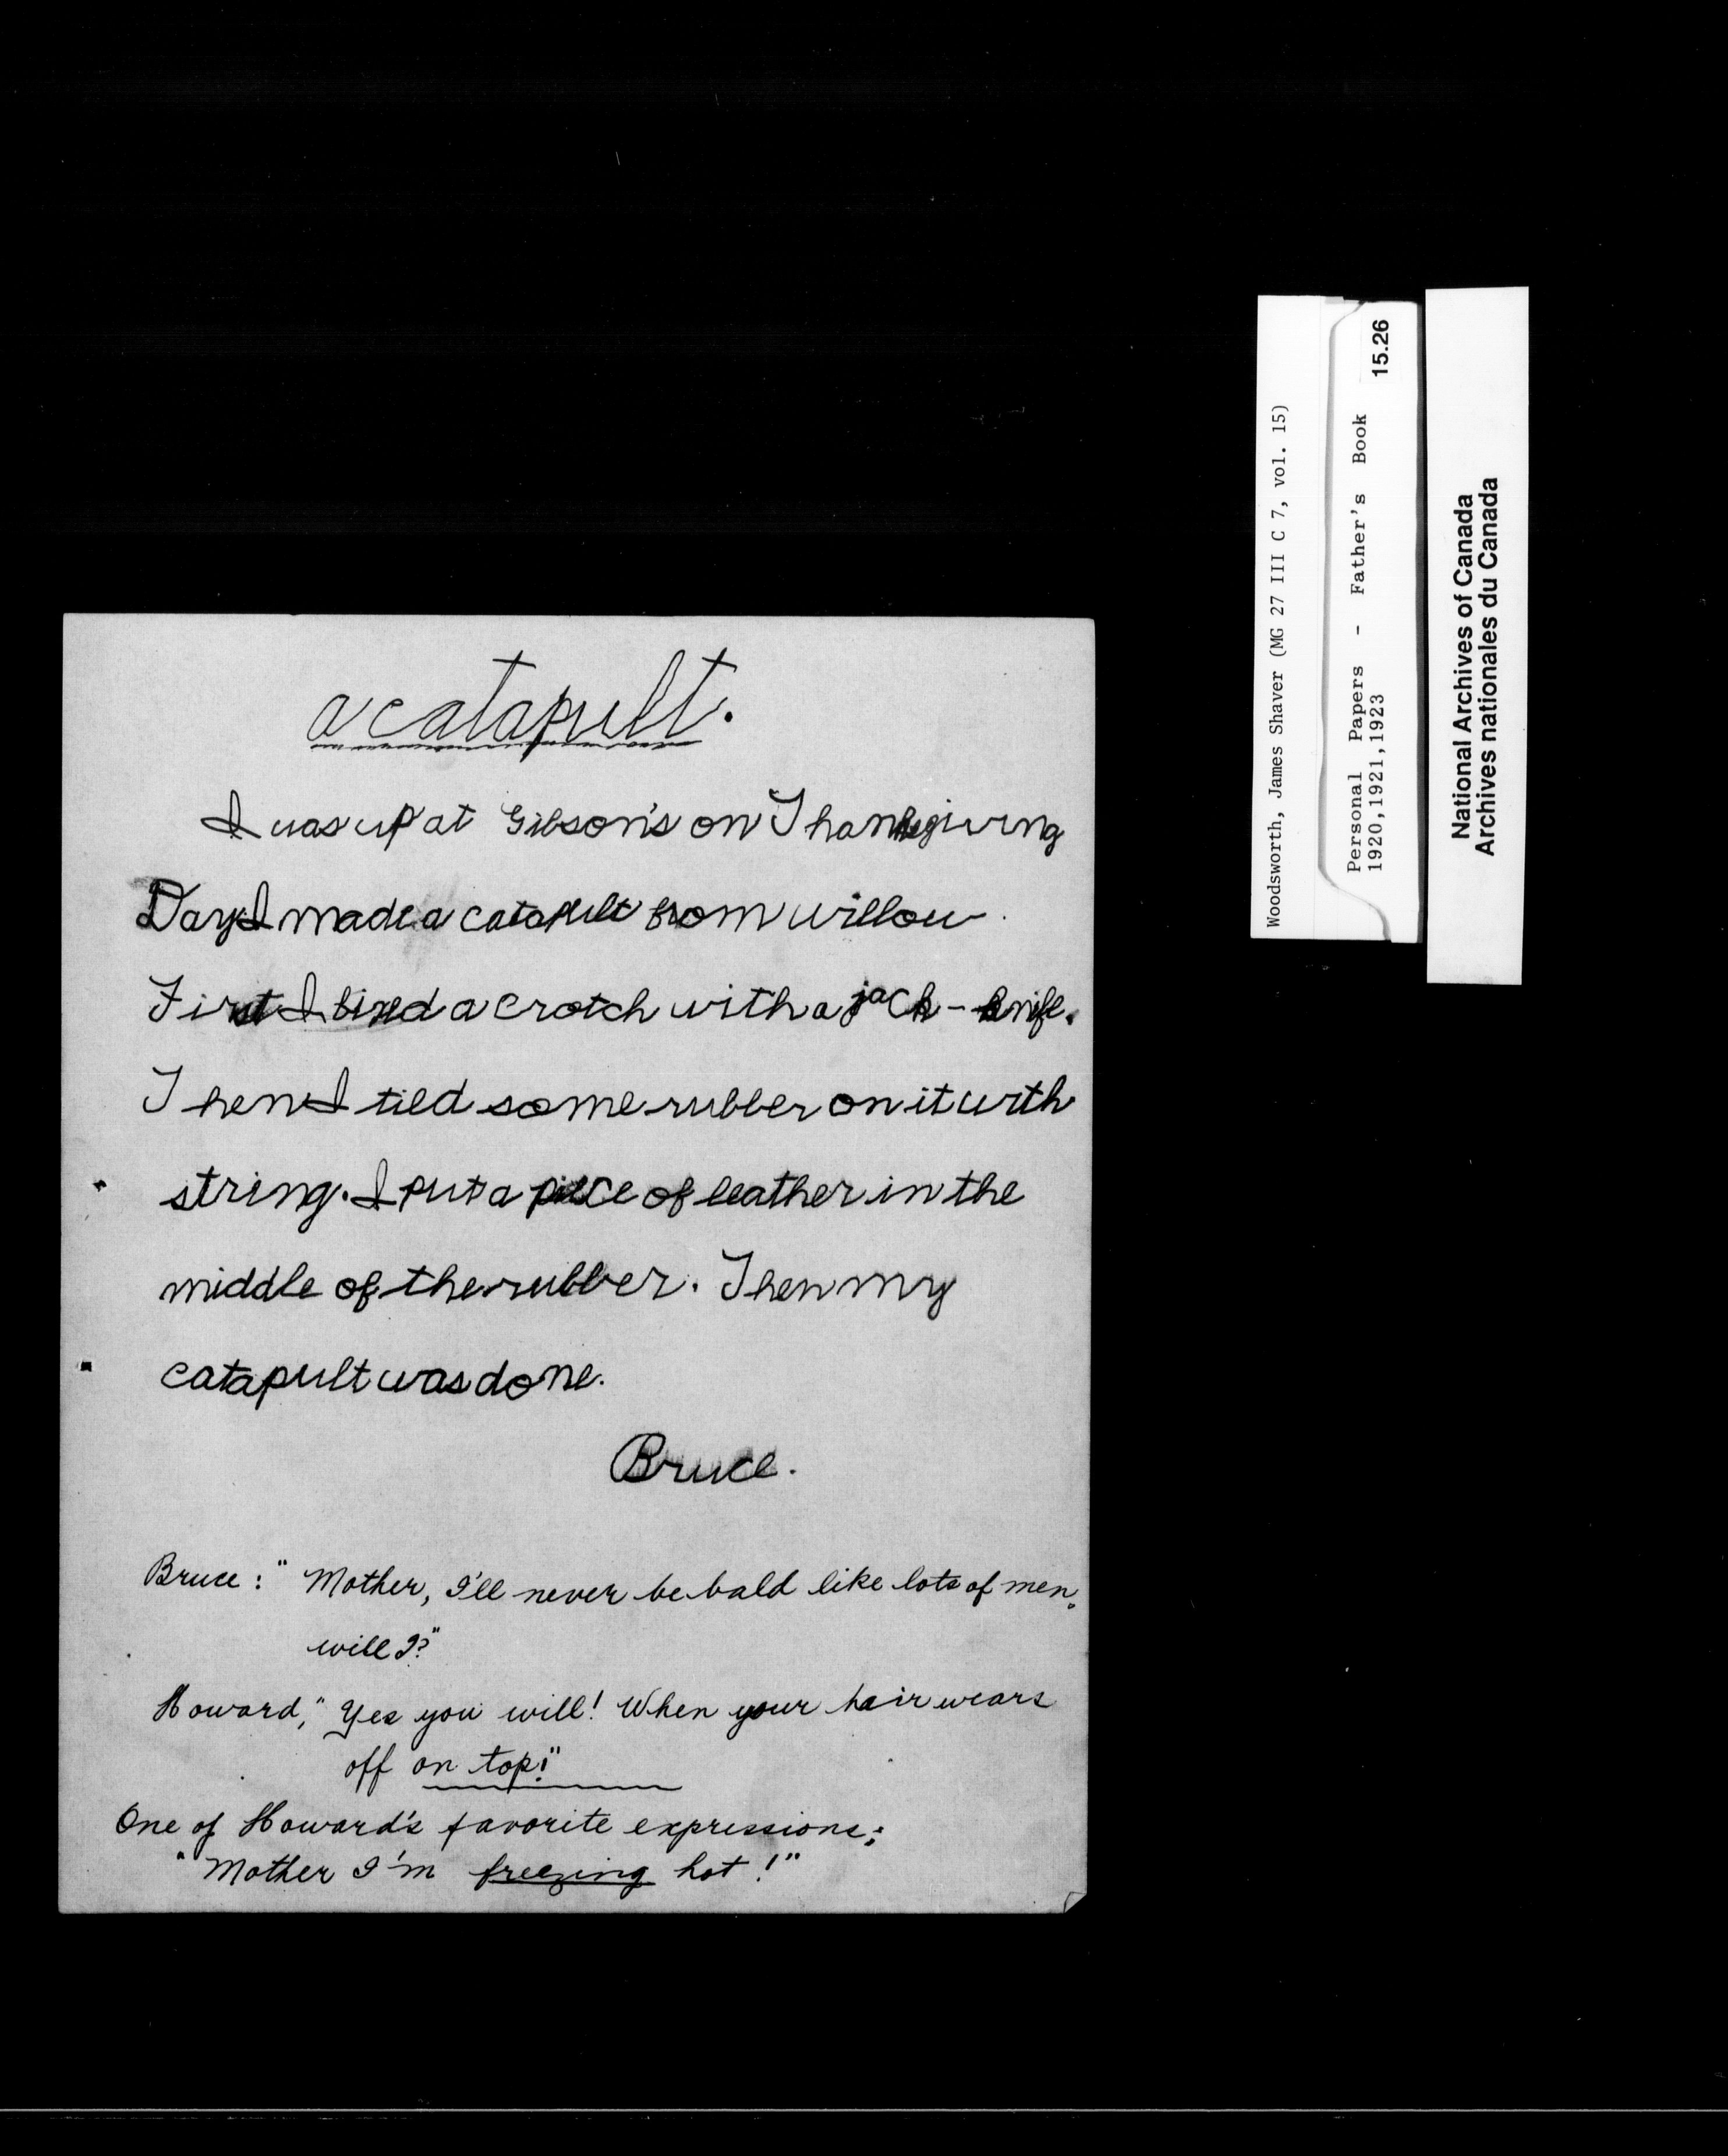 a catapult.
I was up at Gibson's on Thanksgiving
Day. I made a catapult from willow
First I fixed a crotch with a jack-knife.
Then I tied some rubber on it with
string. I put a piece of leather in the
middle of the rubber. Then my
catapult was done.
Bruce.
Bruce: "Mother, I'll never be bald like lots of men,
will I?"
Howard, "Yes you will! When your hair wears
off on top!"
One of Howard's favorite expressions;
"Mother I'm freezing hot!"
Woodsworth, James Shaver (MG 27 III C 7, vol. 15)
Personal Papers - Father's Book 15.26
1920,1921,1923
National Archives of Canada
Archives nationales du Canada